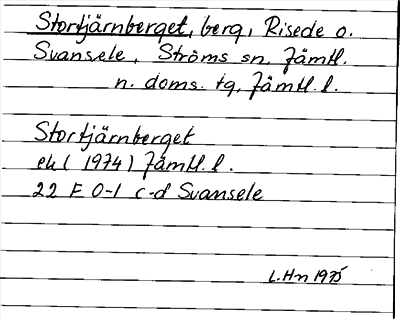 Stortjärnberget, berg, Risede o.
Svansele, Ströms sn, Jämtl.
n. doms. tg, Jämtl. l.
Stortjärnberget
ek ( 1974 ) Jämtl. l.
22 F 0-1 c-d Svansele
L.Hn 1975